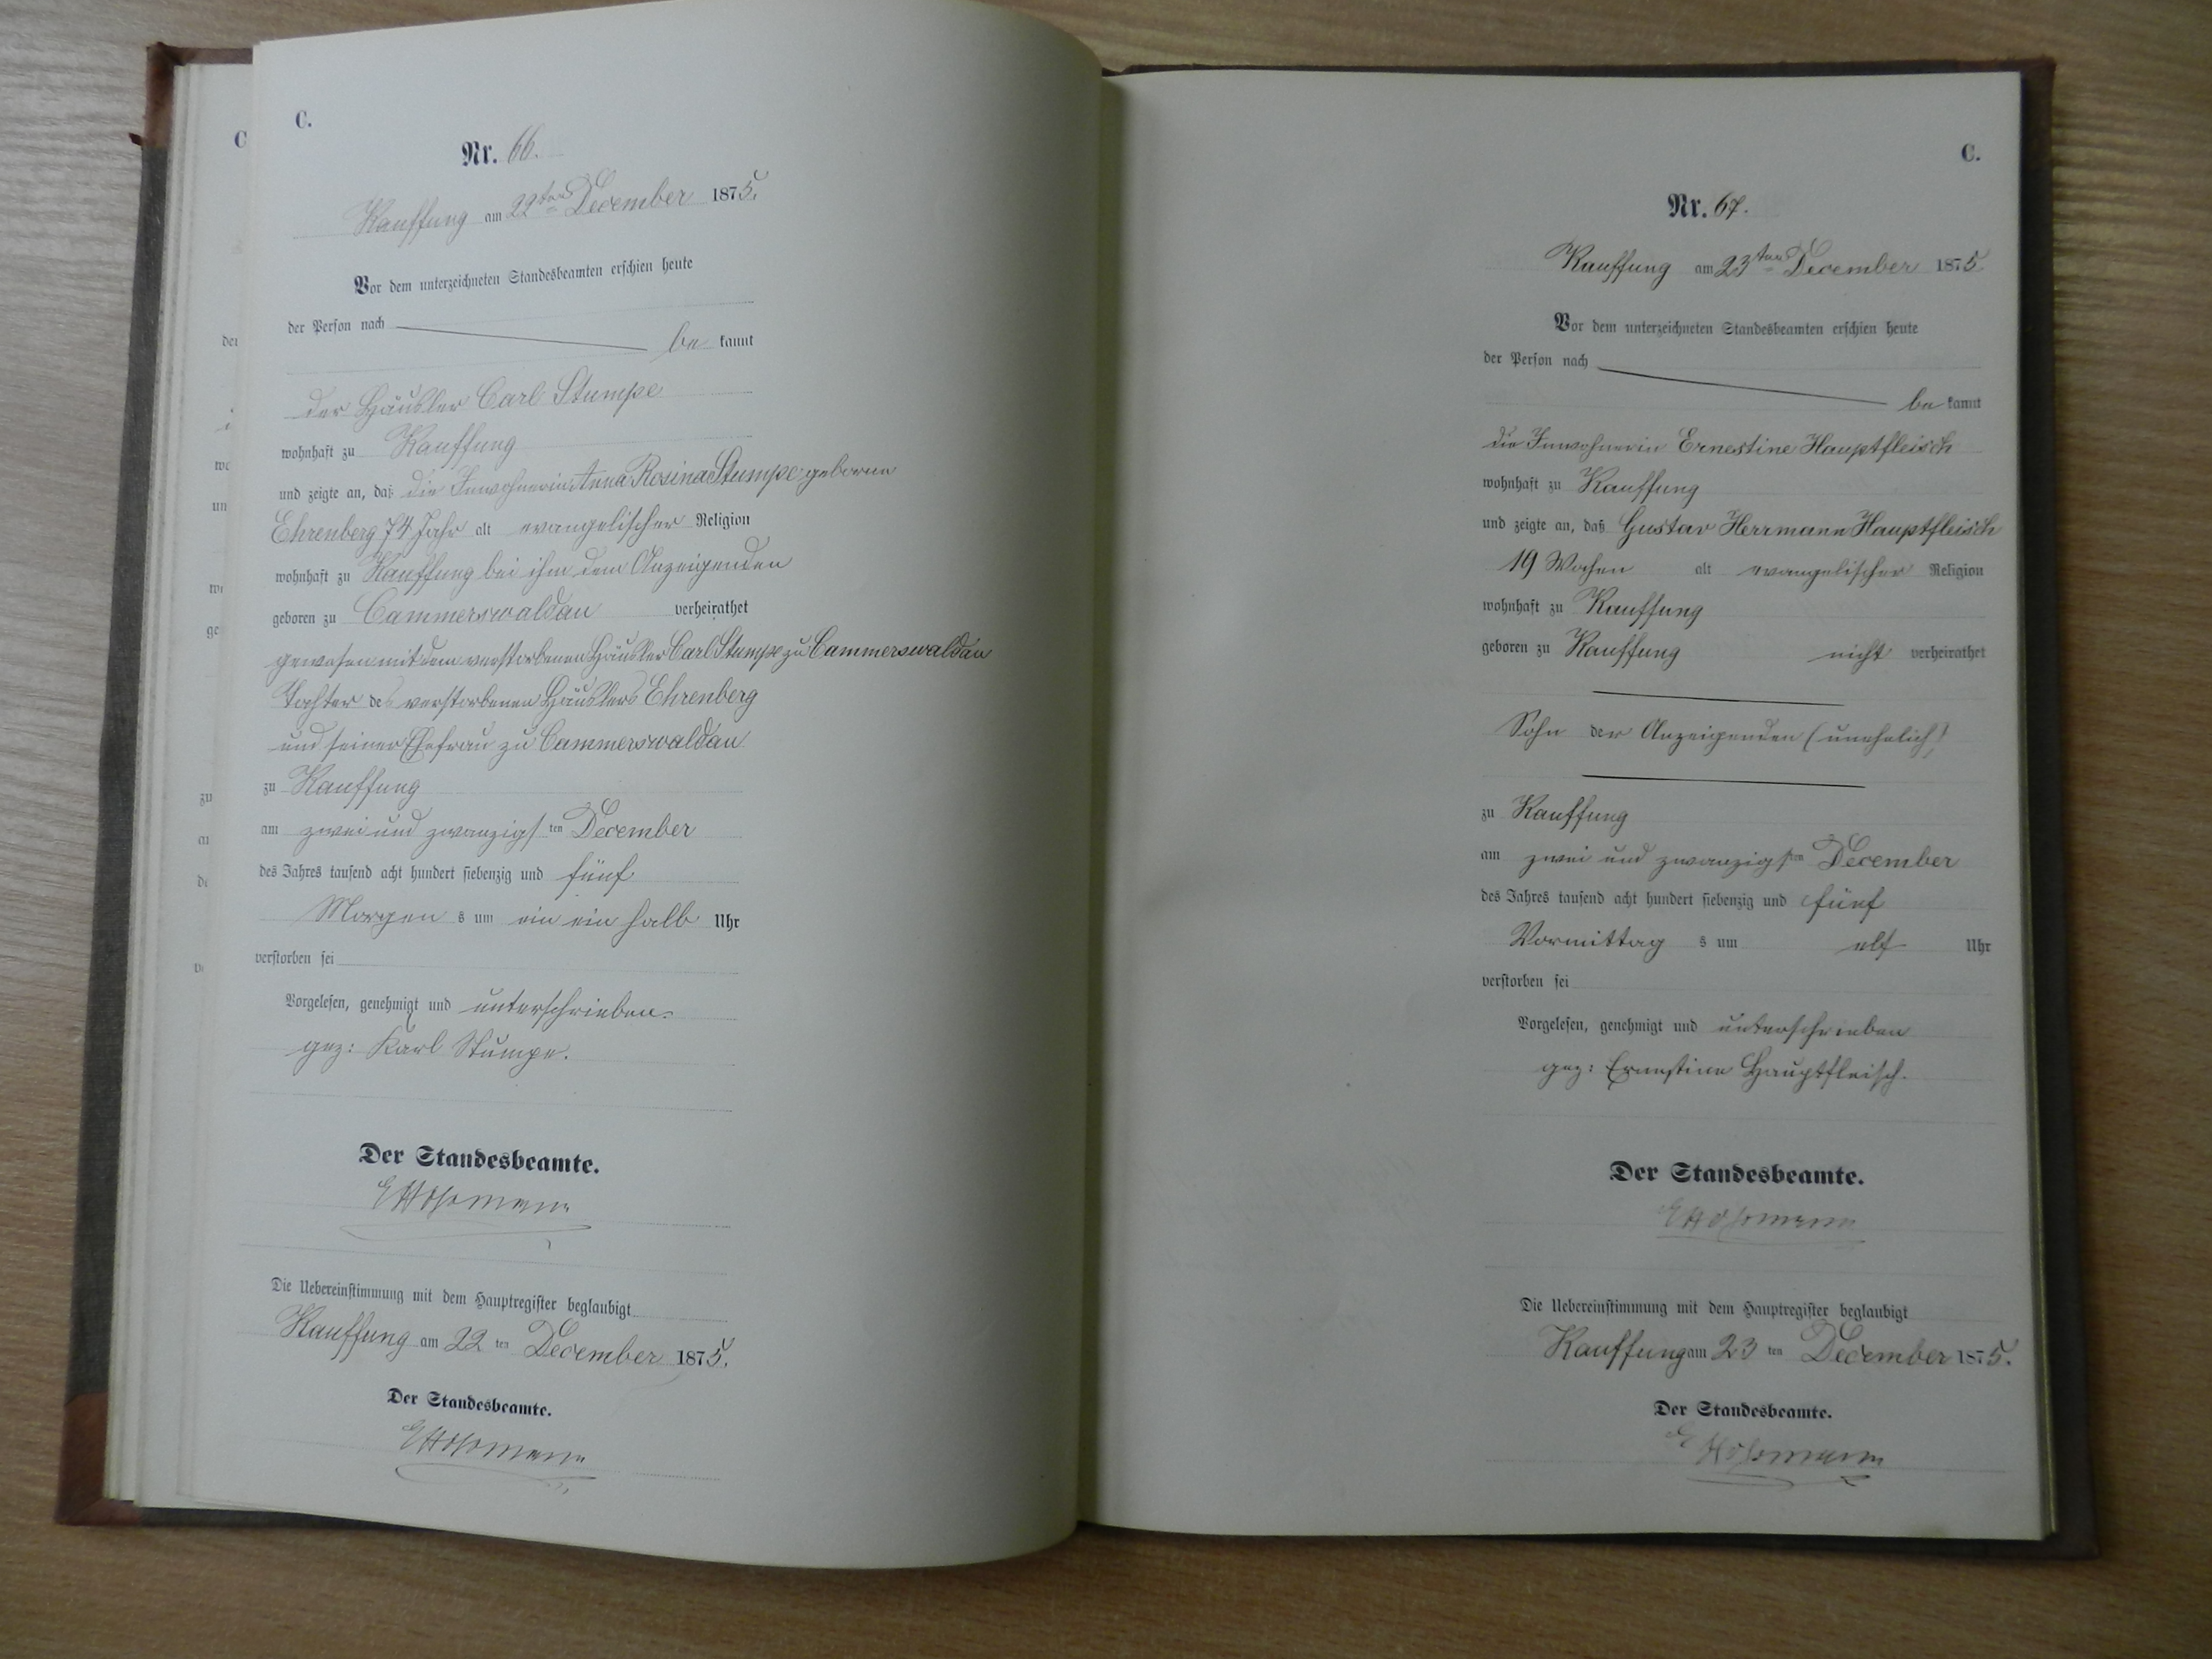 C.
Nr. 66.
Kauffung am 22ten December 1875.
Vor dem unterzeichneten Standesbeamten erschien heute
der Person nach
be kannt
der Häusler Carl Stumpe
wohnhaft zu Kauffung
und zeigte an, daß die Inwohnerin Anna Rosina Stumpe geborne
Ehrenberg 74 Jahr alt evangelischer Religion
wohnhaft zu Kauffung bei ihm dem Anzeigenden
geboren zu Cammerswaldau verheirathet
gewesen mit dem verstorbenen Häusler Carl Stumpe zu Cammerswaldau
Tochter des verstorbenen Häuslers Ehrenberg
und seiner Ehefrau zu Cammerswaldau
zu Kauffung
am zwei und zwanzigsten December
des Jahres tausend acht hundert siebenzig und fünf
Morgens um ein ein halb Uhr
verstorben sei
Vorgelesen, genehmigt und unterschrieben.
gez: Karl Stumpe.
Der Standesbeamte.
Die Uebereinstimmung mit dem Hauptregister beglaubigt
Kauffung am 22 ten December 1875.
Der Standesbeamte.
C.
Nr. 67.
Kauffung am 23ten December 1875.
Vor dem unterzeichneten Standesbeamten erschien heute
der Person nach
be kannt
die Inwohnerin Ernestine Hauptfleisch
wohnhaft zu Kauffung
und zeigte an, daß Gustav Herrmann Hauptfleisch
19 Wochen alt evangelischer Religion
wohnhaft zu Kauffung
geboren zu Kauffung nicht verheirathet
Sohn der Anzeigenden (unehelich)
zu Kauffung
am zwei und zwanzigsten December
des Jahres tausend acht hundert siebenzig und fünf
Vormittags um elf Uhr
verstorben sei
Vorgelesen, genehmigt und unterschrieben
gez: Ernestine Hauptfleisch.
Der Standesbeamte.
Die Uebereinstimmung mit dem Hauptregister beglaubigt
Kauffung am 23 ten December 1875.
Der Standesbeamte.